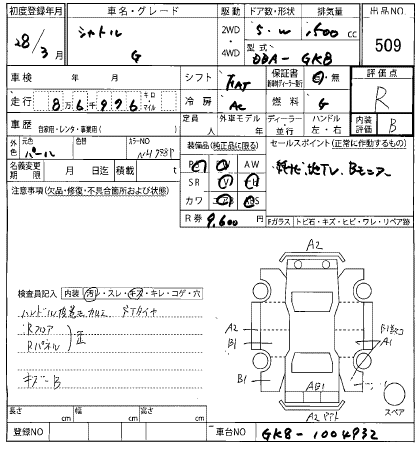 初度登録年月 車名・グレード 駆動 ドア数・形状 排気量 出品NO
28/3月 シャトル G 2WD・4WD 5・W 1,500 cc 509
型式 DBA-GK8
車検 年 月 シフト FAT 保証書 有・無 評価点 R
走行 8万6千976 キロ マイル 冷房 AC 燃料 G
車歴 自家用・レンタ・事業用( ) 定員 人 外車モデル 年 ディーラー・並行 ハンドル 左・右 内装評価 B
外色 元色 パール 色替 カラーNO NH788P 装備品(純正品に限る) セールスポイント(正常に作動するもの)
名義変更期限 月 日迄 積載 t PS PW AW
SR TV ナビ
カワ エアB ABS
R券 9,600円
ナビ 地TV Bモニター
注意事項(欠品・修復・不具合箇所および状態)
Fガラス トビ石・キズ・ヒビ・ワレ・リペア跡
検査員記入 内装 汚レ・スレ・キズ・キレ・コゲ・穴
Rフロア
Rパネル
キズ-B
A2
A2 B1 A1
B1
AB1
A2
スペア
長さ cm 幅 cm 高さ cm
登録NO 車台NO GK8-1004932